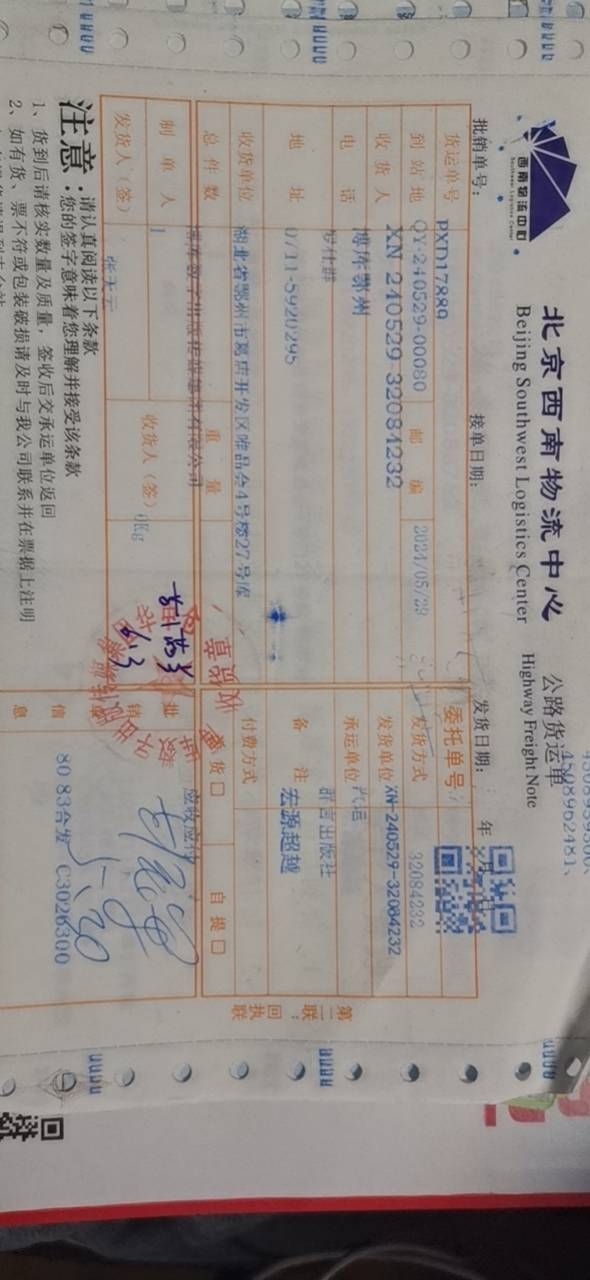 西南物流中心
Southwest Logistics Center
北京西南物流中心
Beijing Southwest Logistics Center
公路货运单
Highway Freight Note
45089962481、
批销单号：
接单日期：
发货日期： 年 月
PXD17889
货运单号
QY-240529-00080
委托单号
32084232
到站地
XN 240529 32084232
邮编
2024/05/29
发货方式
XN-240529-32084232
收货人
博库鄂州
发货单位
汽运
电话
承运单位
群言出版社
地址
0711-5920295
备注
宏源超越
收货单位
湖北省鄂州市葛店开发区唯品会4号楼27号库
付费方式
总件数
重量
货 □
自提 □
制单人
1
收货人（签）
0Kg
应收应付
发货人（签）
6.13
批
信息
80 83合发 C3026300
第二联：回执联
注意：
请认真阅读以下条款
您的签字意味着您理解并接受该条款
1、货到后请核实数量及质量，签收后交承运单位返回
2、如有货、票不符或包装破损请及时与我公司联系并在票据上注明